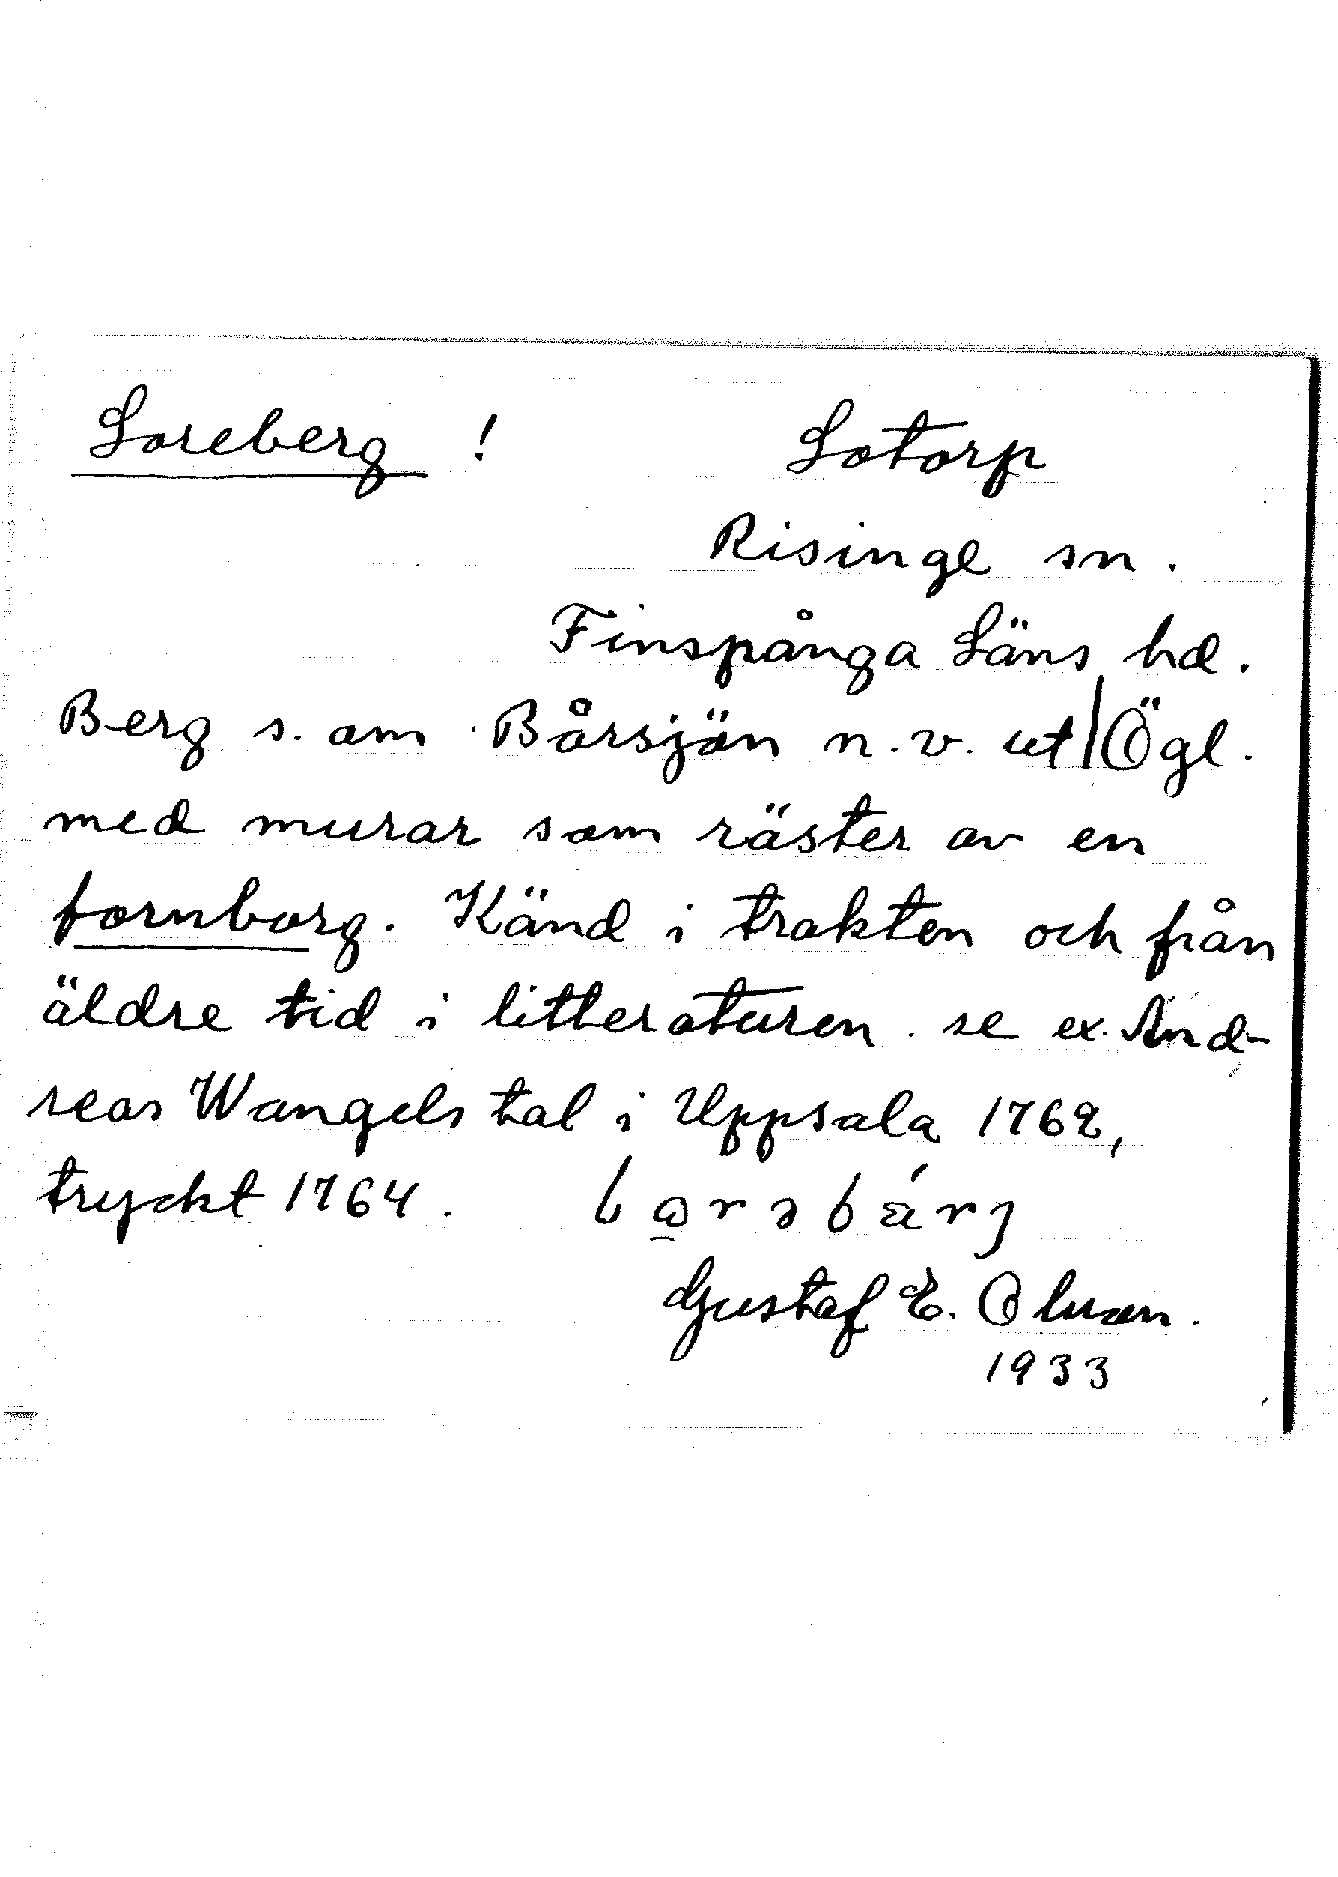 Loreberg ! Lotorp
Risinge sn.
Finspånga Läns hd.
Berg s. om Bårsjön n.v. ut Ögl.
med murar som räster av en
fornborg. Känd i trakten och från
äldre tid i litteraturen. se ex. And-
reas Wangels tal i Uppsala 1762,
tryckt 1764.
Gustaf E. Olsson.
1933